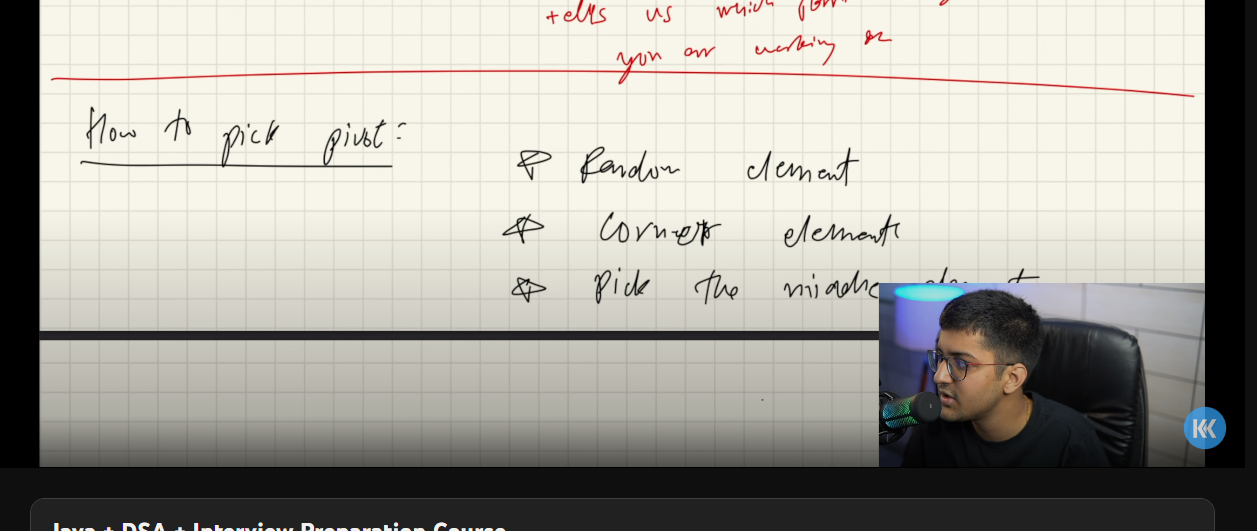 tells us which
you are working on
How to pick pivot:
Random element
Corner elements
Pick the middle
KK
Java + DSA + Interview Preparation Course